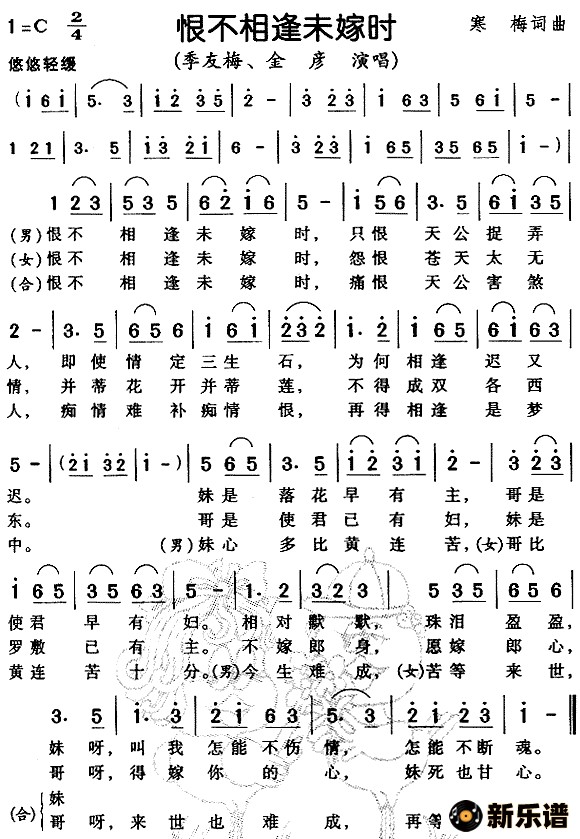 1=C 2/4 恨不相逢未嫁时 寒 梅词曲
悠悠轻缓 (季友梅、金 彦 演唱)
(i 6 i | 5· 3 | i 2 3 5 | 2 - | 3 2 3 | i 6 3 | 5 6 i | 5 - |
1 2 1 | 3· 5 | i 3 2 i | 6 - | 3 2 3 | i 2 3 | i 6 5 | i - )|
1 2 3 | 5 3 5 | 6 2 i 6 | 5 - | i· 5 | i 6 5 | 3· 5 | 6 i 3 5 |
(男)恨不 相逢未嫁时, 只恨 天公捉弄
(女)恨不 相逢未嫁时, 怨恨 苍天太无
(合)恨不 相逢未嫁时, 痛恨 天公害煞
2 - | 3· 5 | 6 5 6 | i 6 i | 2 3 2 | i· 2 | i 6 5 | 6 i 3 6 |
人, 即使情定三生石, 为何相逢迟又
情, 并蒂花开并蒂莲, 不得成双各西
人, 痴情难补痴情恨, 再得相逢是梦
5 - | (2 i 3 2 | i - ) | 5 6 5 | 3· 5 | i 2 3 i | 2 - | 3 2 3 |
迟。 妹是落花早有主, 哥是
东。 哥是使君已有妇, 妹是
中。 (男)妹心多比黄连苦,(女)哥比
i 6 5 | 3 5 6 3 | 5 6 5 | 1· 2 | 3 2 3 | 5 3 5 | 6 5 6 |
使君早有妇。相对默默, 珠泪盈盈,
罗敷已有主。不嫁郎身, 愿嫁郎心,
黄连苦十分。(男)今生难成,(女)苦等来世,
3· 5 | i· 3 | 2 i 6 3 | 5· 3 | 2 i 2 3 | i - ‖
妹呀,叫我怎能不伤情, 怎能不断魂。
哥呀,得嫁你的心, 妹死也甘心。
(合) 妹
哥呀,来世也难成, 再等
新乐谱